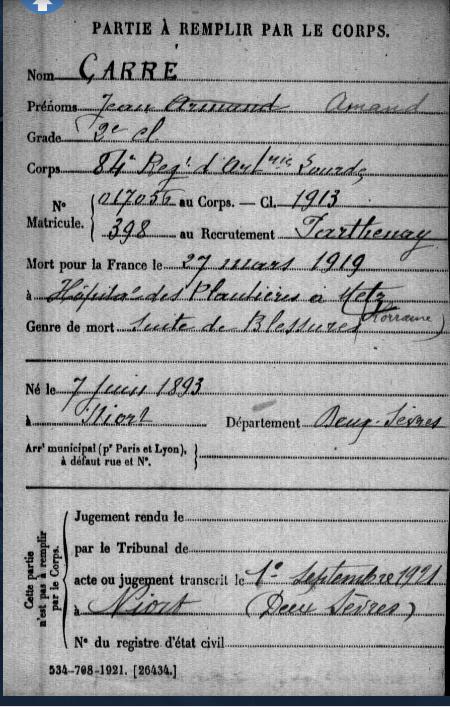 PARTIE À REMPLIR PAR LE CORPS.
Nom CARRE
Prénoms Jean Armand Amand
Grade 2e cl
Corps 84e Regt d'Artrie Lourde
N° Matricule. { 017056 au Corps. — Cl. 1913
398 au Recrutement Parthenay
Mort pour la France le 27 mars 1919
à Hôpital des Plantières à Metz
(Lorraine)
Genre de mort Suite de Blessures
Né le 7 Juin 1893
à Niort Département Deux-Sèvres
Arrt municipal (pr Paris et Lyon),
à défaut rue et N°.
Cette partie
n'est pas à remplir
par le Corps.
Jugement rendu le
par le Tribunal de
acte ou jugement transcrit le 1er Septembre 1921
à Niort (Deux Sèvres)
N° du registre d'état civil
534-708-1921. [26434.]